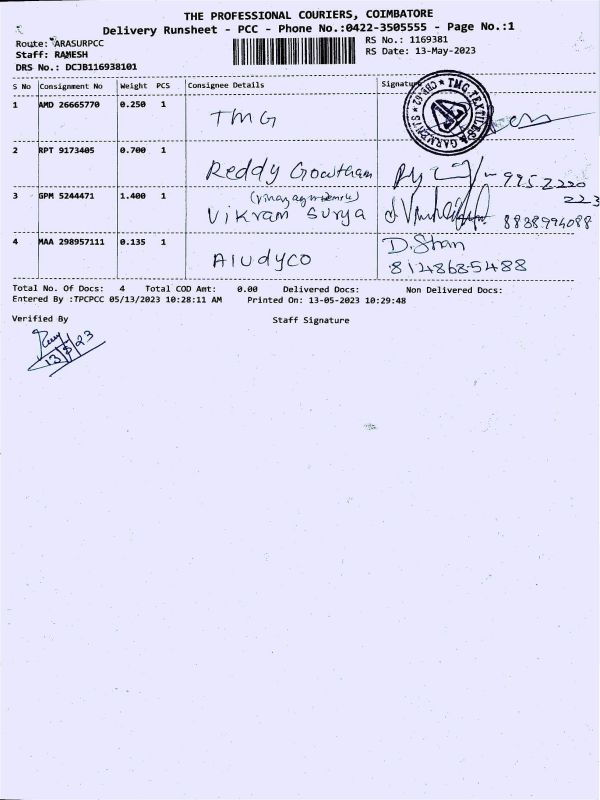 THE PROFESSIONAL COURIERS, COIMBATORE
Delivery Runsheet - PCC - Phone No.:0422-3505555 - Page No.:1
Route: ARASURPCC
RS No.: 1169381
Staff: RAMESH
RS Date: 13-May-2023
DRS No.: DCJB116938101
S No Consignment No Weight PCS Consignee Details Signature
1 AMD 26665770 0.250 1 TMG
TMG TEXTILES GARMENTS
2 RPT 9173405 0.700 1 Reddy Gowtham 9952220
223
3 GPM 5244471 1.400 1 Vikram Surya 8838994088
4 MAA 298957111 0.135 1 Aludyco D. Shan
8148685488
Total No. Of Docs: 4 Total COD Amt: 0.00 Delivered Docs: Non Delivered Docs:
Entered By :TPCPCC 05/13/2023 10:28:11 AM Printed On: 13-05-2023 10:29:48
Verified By Staff Signature
13/5/23